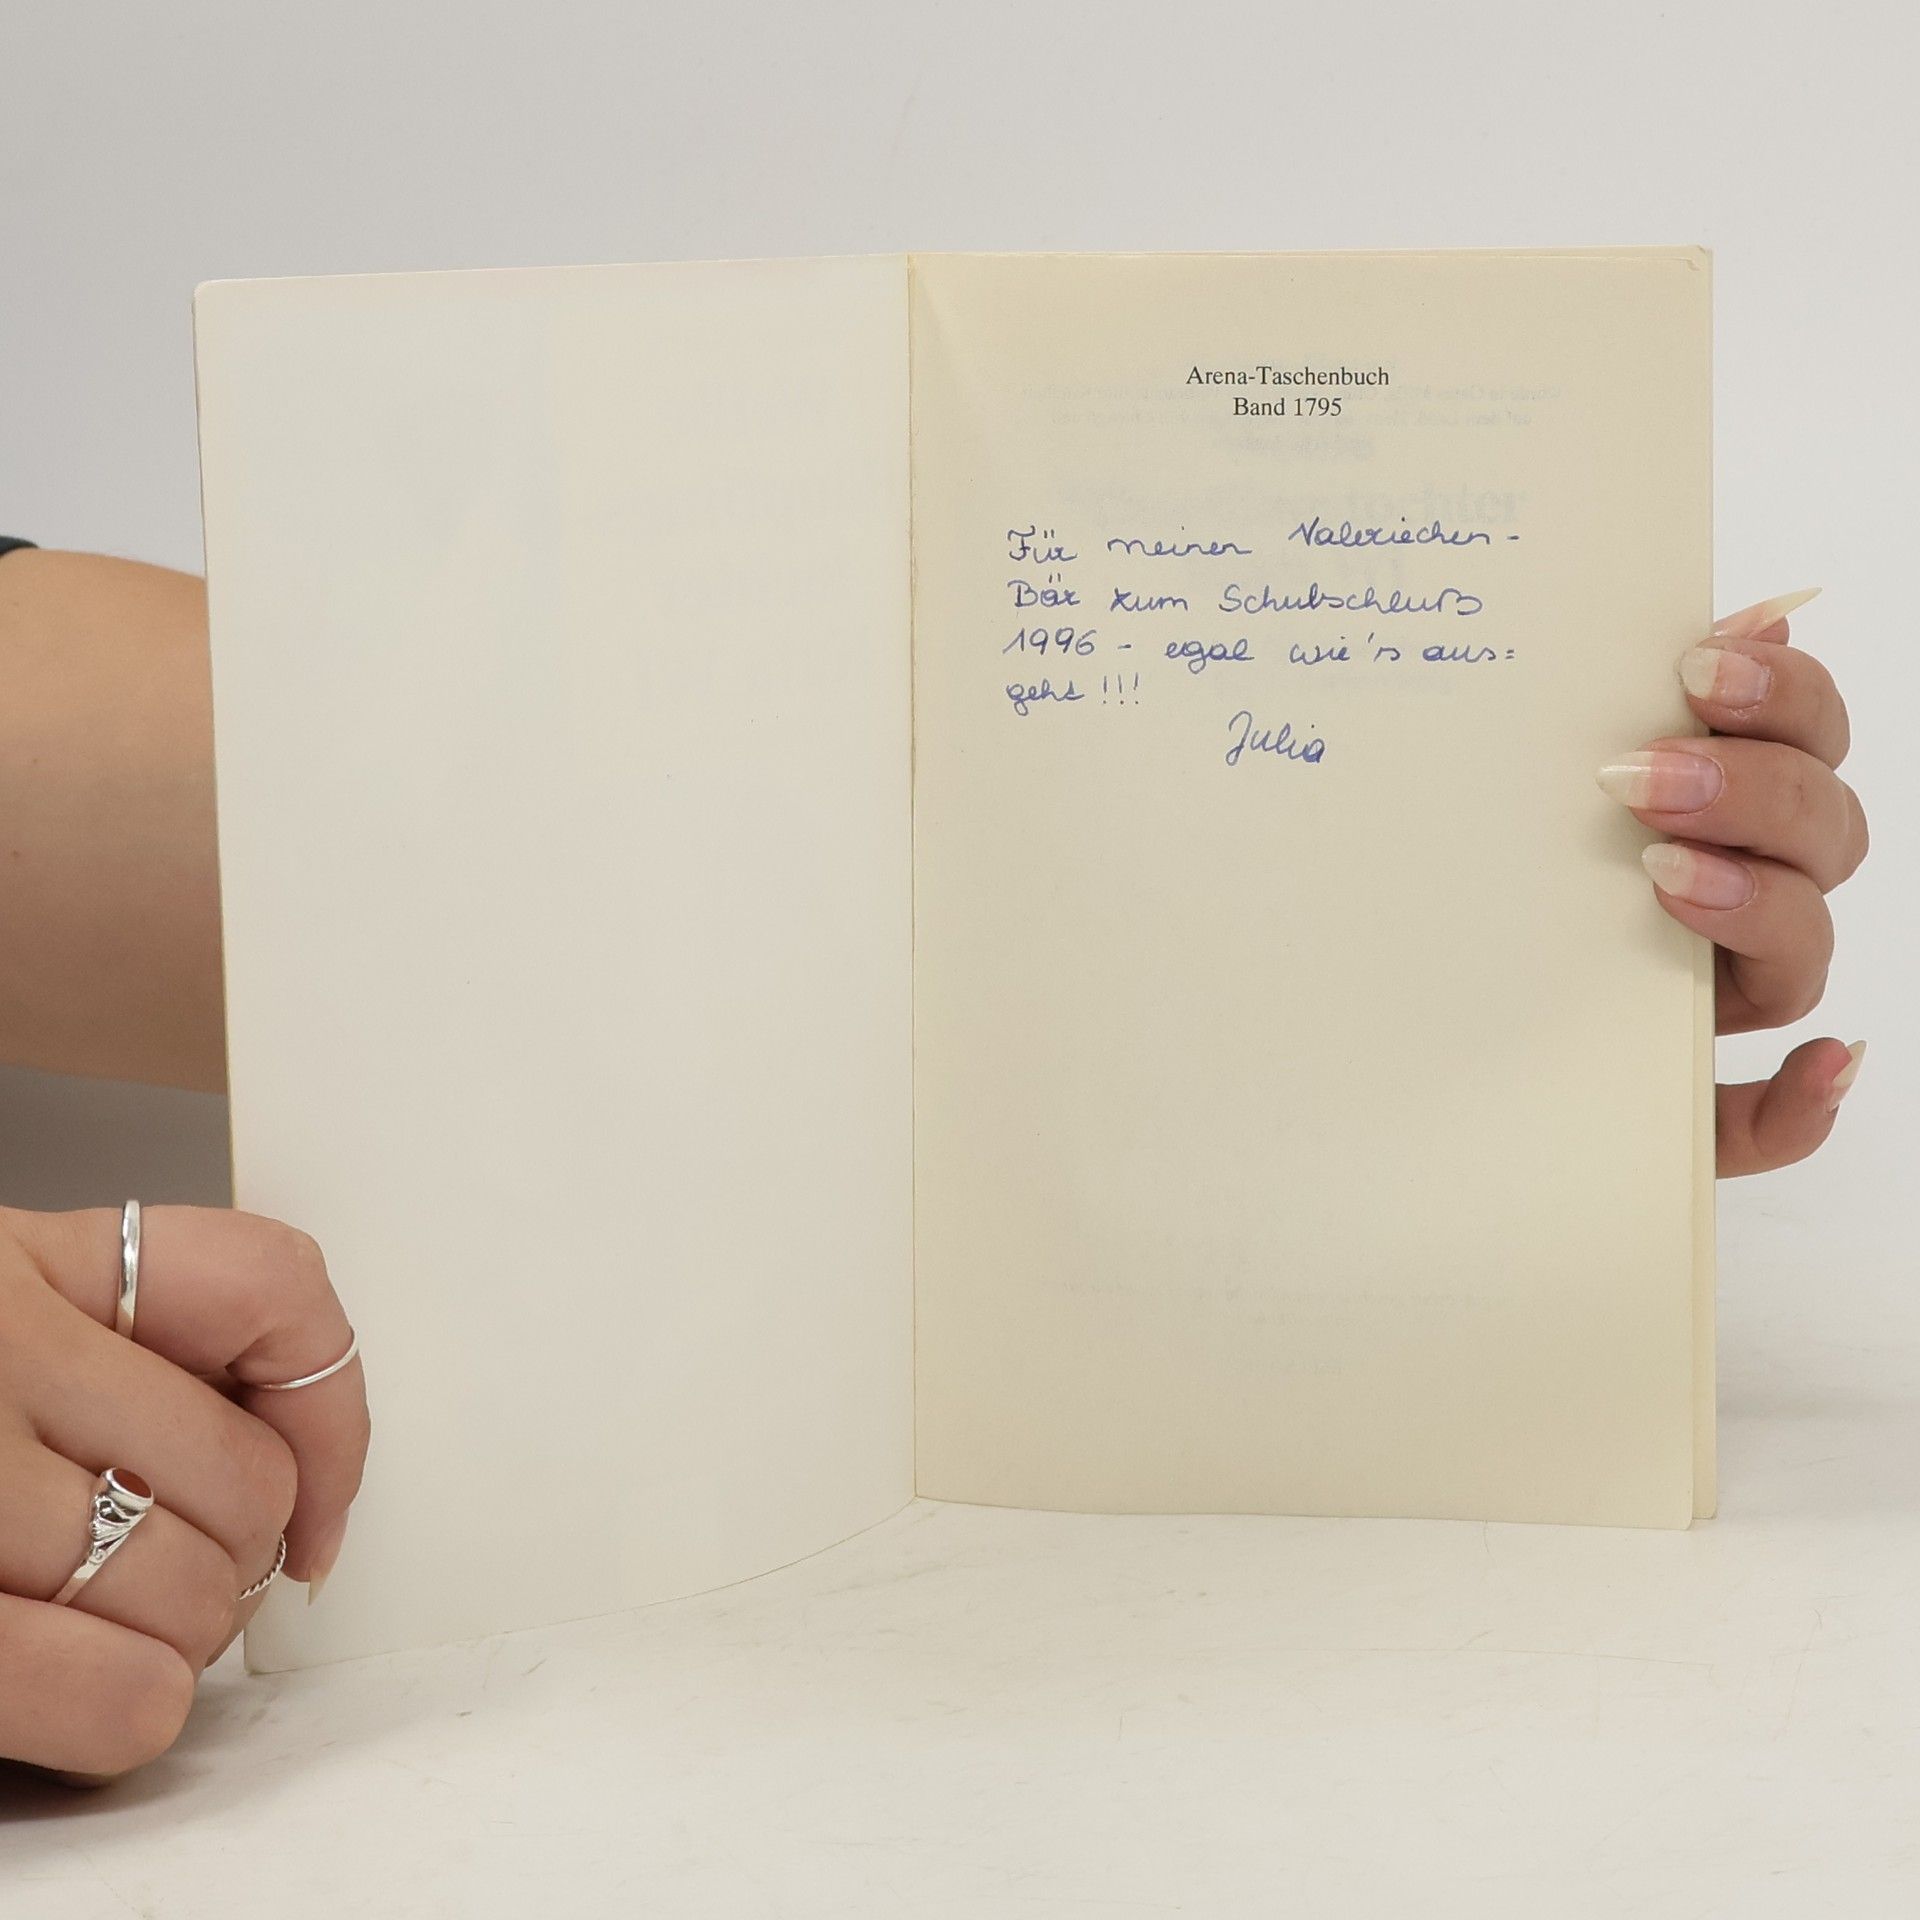 Arena-Taschenbuch
Band 1795
Für meinen Valeriechen-
Bär zum Schulschluß
1996 - egal wie's aus=
geht !!!
Julia